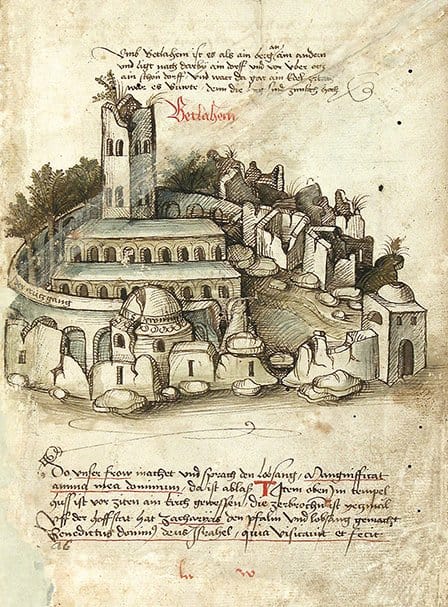 Umb Betlahem ist es als ain berg an am andern
und ligt nach darby ain dorff und vor uber och
ain schön dorff und waer da gar ain Edel
waer es buwte, denn die berg sind zimlich hoch
Betlahem
usgang
Do unser frow machet und sprach den lobsang, Mangnifficat
anima mea dominum, da ist ablaß Item oben jm tempel
huss ist vor ziten ain kirch gewessen, die zerbrochen ist yeczmal
Uff der hoffstat hat Zacharias den psalm und lobsang gemacht
Benedictus domin deus Israhel, quia visitavit et fecit